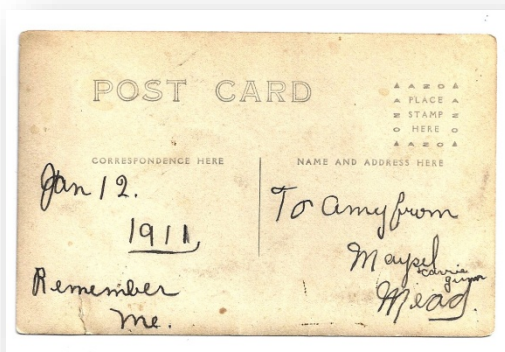 POST CARD
AZO
PLACE
STAMP
HERE
AZO
CORRESPONDENCE HERE
NAME AND ADDRESS HERE
Jan 12.
1911
Remember
me.
To Amy from
Maysel
Carrie
Mead.